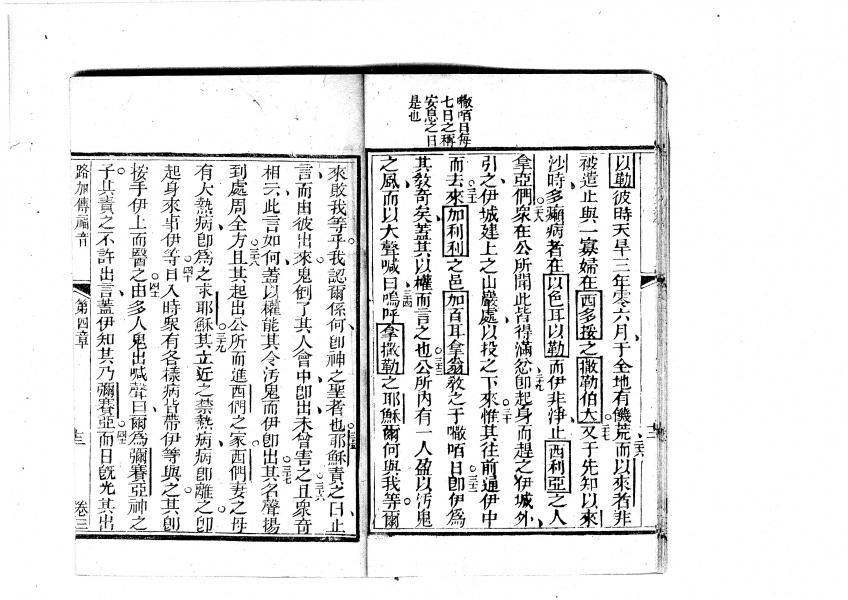 㘔㗑日每
七日之稱
安息之日
是也
以勒彼時天旱三年零六月于全地有饑荒而以來者非
被遣止與一寡婦在西多捘之撒勒伯大又于先知以來
沙時多癩病者在以色耳以勒而伊非淨止西利亞之人
拿亞們衆在公所聞此皆得滿忿卽起身而趕之伊城外
引之伊城建上之山巖處以投之下來惟其往前通伊中
而去來加利利之邑加百耳拿翁敎之于㘔㗑日卽伊爲
其敎奇矣蓋其以權而言之也公所內有一人盈以汚鬼
之風而以大聲喊曰嗚呼拿撒勒之耶穌爾何與我等爾
來敗我等乎我認爾係何卽神之聖者也耶穌責之曰止
言而由彼出來鬼倒了其人會中卽出未曾害之且衆奇
相云此言如何蓋以權能其令汚鬼而伊卽出其名聲揚
到處周全方且其起出公所而進西們之家西們妻之母
有大熱病卽爲之求耶穌其立近之禁熱病病卽離之卽
起身來事伊等日入時衆有各樣病皆帶伊等與之其則
按手伊上而醫之由多人鬼出喊聲曰爾爲彌賽亞神之
子其責之不許出言蓋伊知其乃彌賽亞而日旣光其出
路加傳福音
第四章
卷三